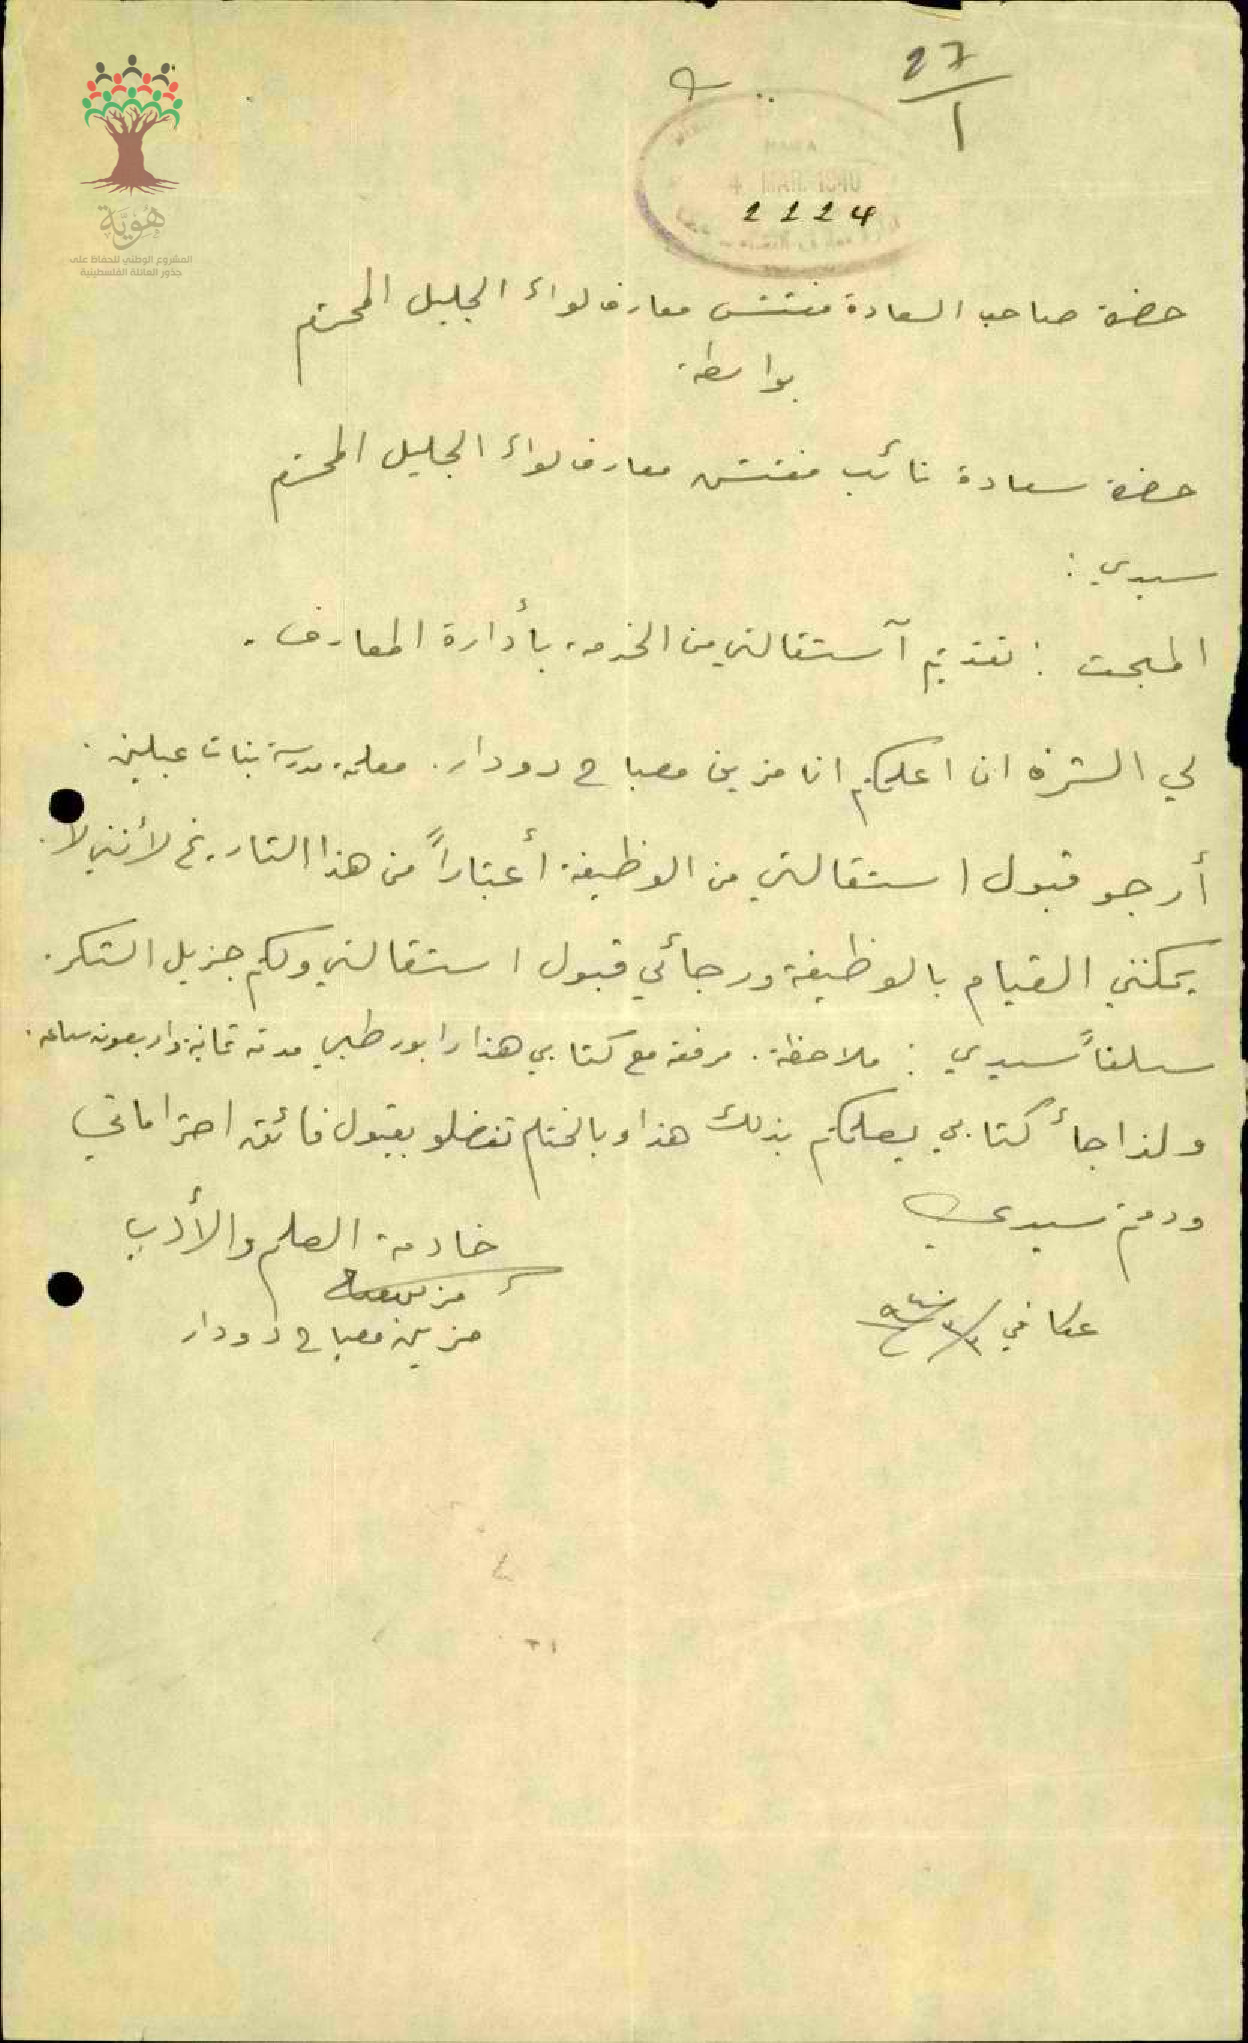 27
1
HAIFA
4 MAR. 1940
1124
هُوِيَّة
المشروع الوطني للحفاظ على
جذور العائلة الفلسطينية
حضرة صاحب السعادة مفتش معارف لواء الجليل المحترم
بواسطة
حضرة سعادة نائب مفتش معارف لواء الجليل المحترم
سيدي :
المبحث : تقديم آستقالتي من الخدمة بأدارة المعارف .
لي الشرف ان اعلمكم انا مزين مصباح دودار . معلمة مدرسة بنات عبلين .
أرجو قبول استقالتي من الوظيفة أعتباراً من هذا التاريخ لأنني لا
يمكنني القيام بالوظيفة ورجائي قبول استقالتي ولكم جزيل الشكر .
سلفاً سيدي : ملاحظة . مرفقة مع كتابي هذا رابور طبي مدته ثمانية واربعون ساعه .
ولذا جأ كتابي يعلمكم بذلك هذا وبالختام تفضلو بقبول فائق احتراماتي
ودمتم سيدي
خادمة العلم والأدب
مزين مصباح دودار
عكا في